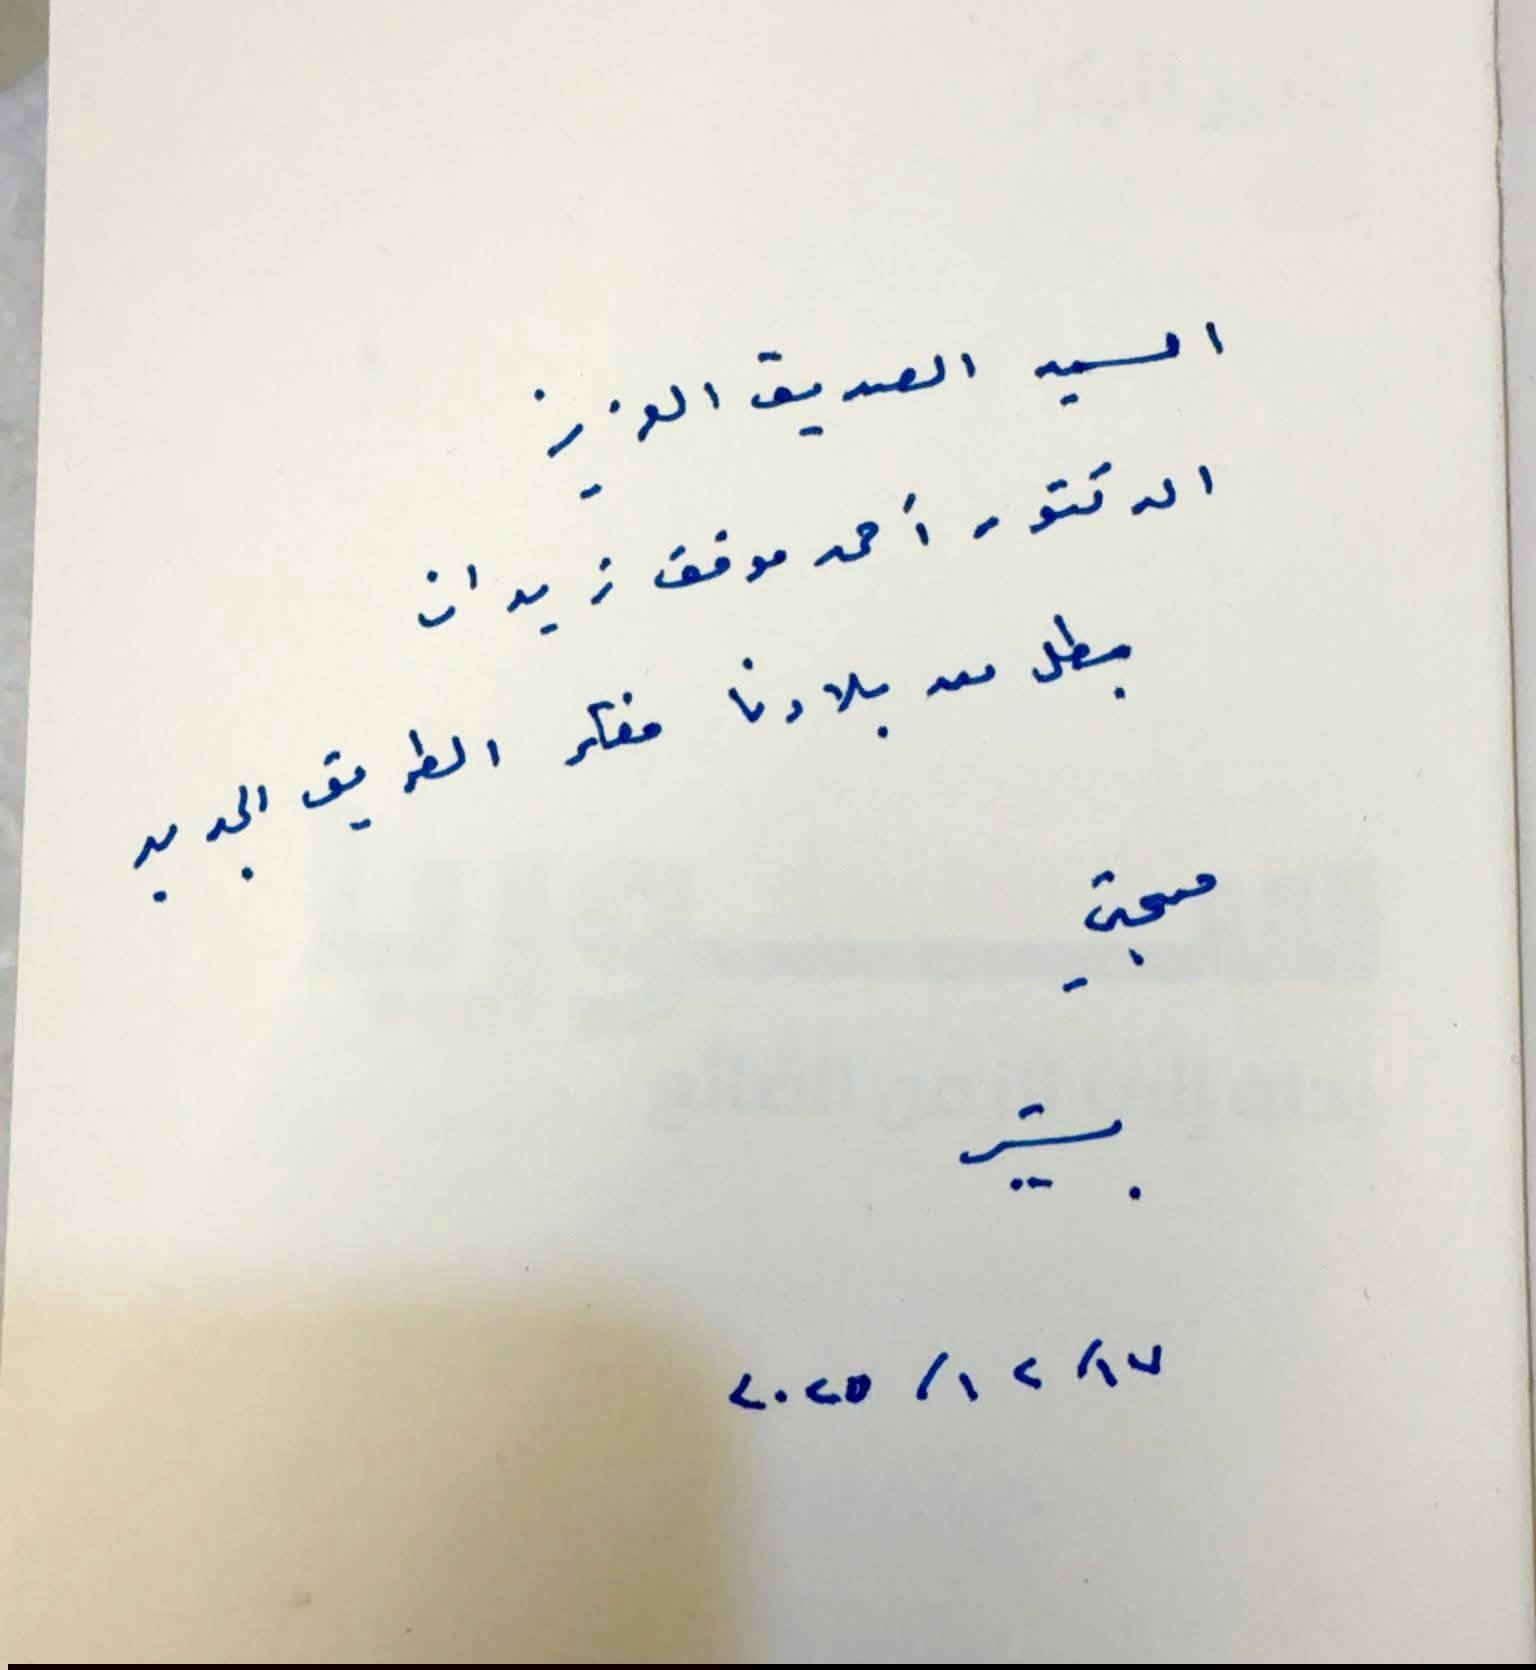 السيد الصديق العزيز
الدكتور أحمد موفق زيدان
بطل من بلادنا مفكر الطريق الجديد
محبتي
بشير
٢٠٢٥/١٢/١٧